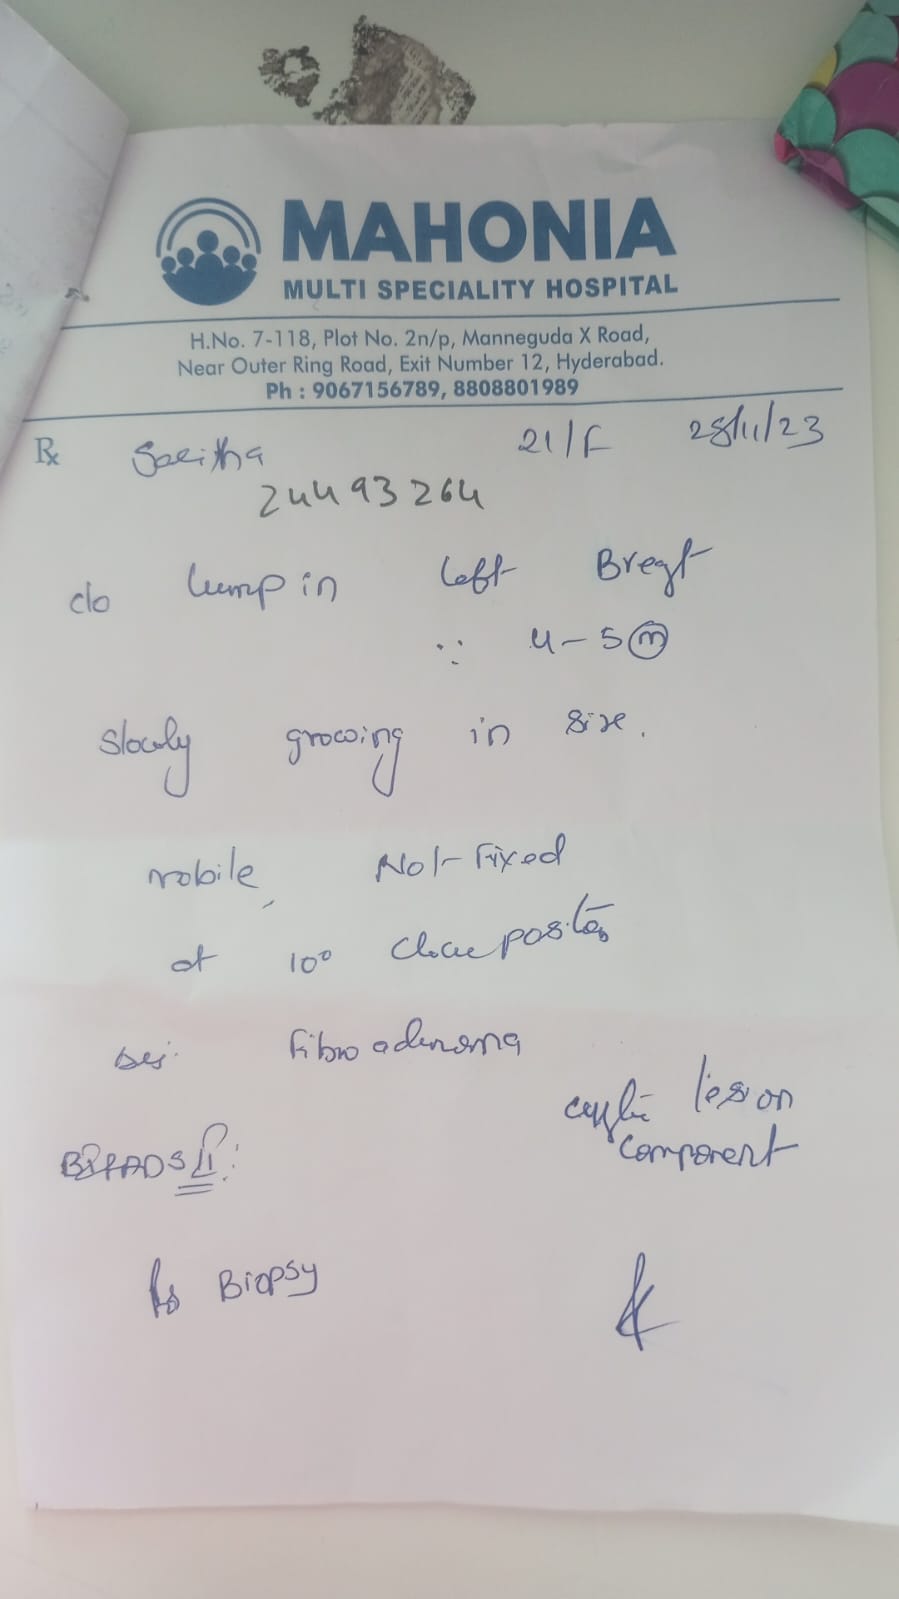 MAHONIA
MULTI SPECIALITY HOSPITAL
H.No. 7-118, Plot No. 2n/p, Manneguda X Road,
Near Outer Ring Road, Exit Number 12, Hyderabad.
Ph : 9067156789, 8808801989
Rx 21/F 28/11/23
24493264
c/o lump in left Breast
∵ 4-5 m
slowly growing in size.
mobile, Not Fixed
at 10° Clock position
Fibroadenoma
lesion
component
BIRADS II
Biopsy